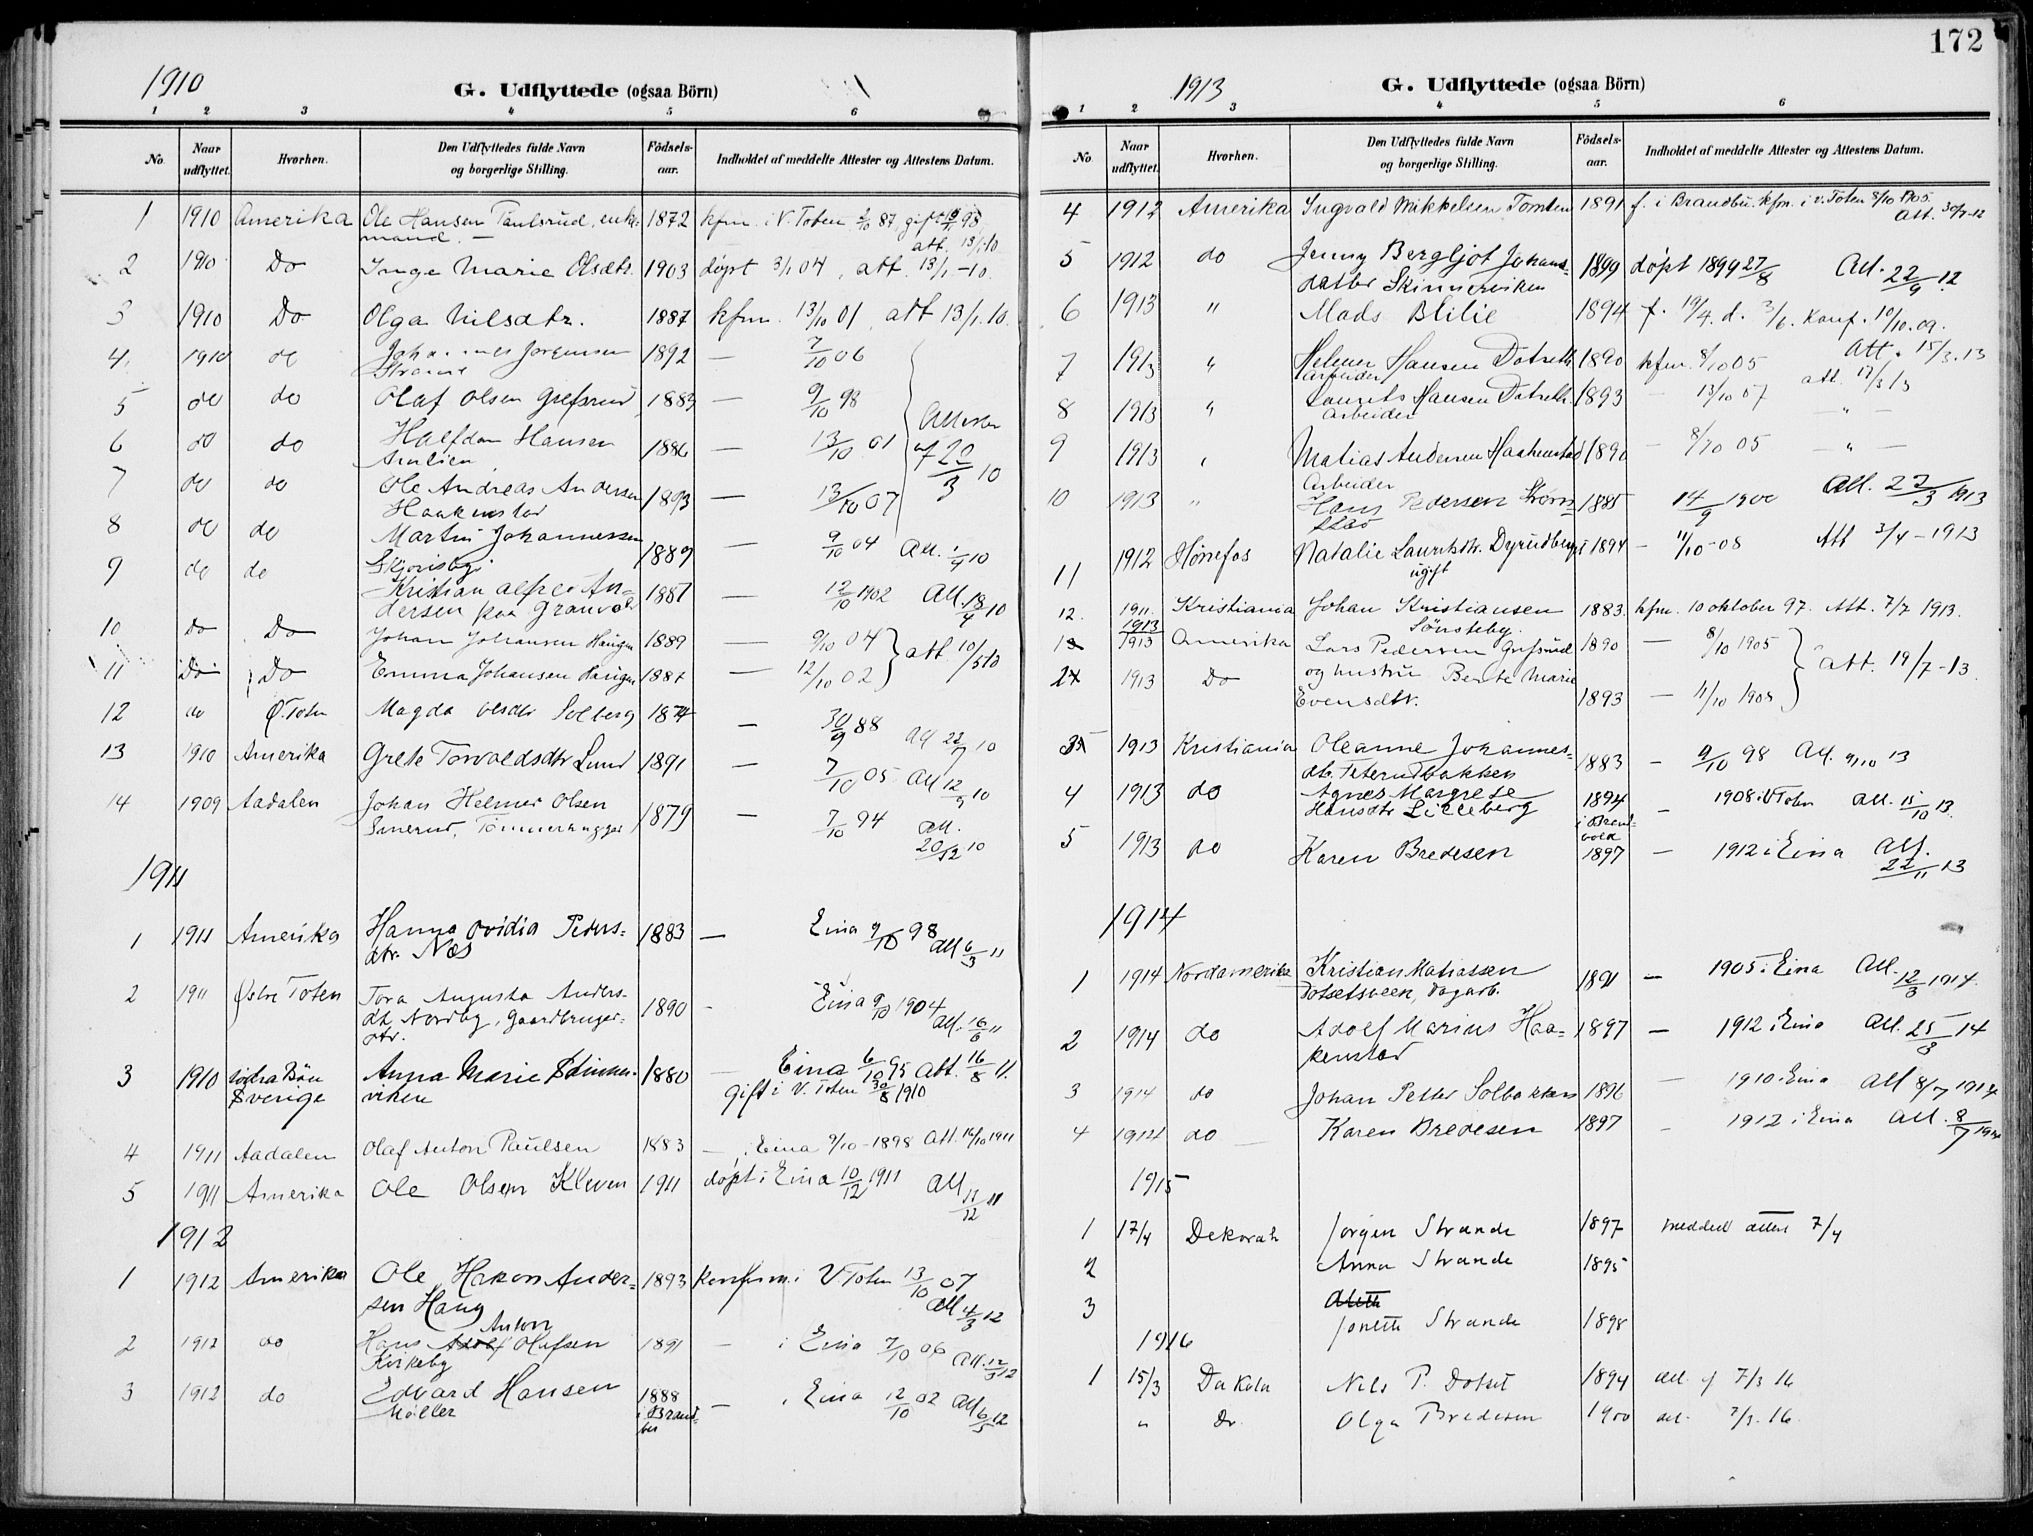 1910
G. Udflyttede (ogsaa Börn)
1 2 3 4 5 6
No. Naar udflyttet. Hvorhen. Den Udflyttedes fulde Navn og borgerlige Stilling. Födsels-aar. Indholdet af meddelte Attester og Attestens Datum.
1 1910 Amerika Ole Hansen Paulsrud, enke- 1872 kfm. i V. Toten 2/10 87, gift 98
mand. — att. 13/1-10
2 1910 Do Inga Marie Olsdtr. 1903 døpt 3/1 04, att. 13/1-10.
3 1910 Do Olga Nilsdtr. 1887 kfm. 13/10 01, att 13/1.10.
4. 1910 do Johannes Jørgensen 1892 — 7/10 06
5 do do Olaf Olsen Grefsrud 1883 — 9/10 98
6 do do Halfdan Hansen 1886 — 13/10 01 Attester
af 22/3 10
7 do do Ole Andreas Andersen 1893 — 13/10 07
Haakenstad
8 do do Martin Johannessen 1889 — 9/10 04 Att. 1/4 10
9 do do Kristian Alfred An- 1887 — 12/10 1902 Att. 18/4 10
dersen paa Granvold
10 Do Do Johan Johansen Haugen 1889 — 9/10 04 att. 10/5 10
11 Do Do Emma Johansen Haugen 1887 — 12/10 02
12 do Ø. Toten Magda Olsdtr Solberg 1874 — 30/9 88 Att 22/7 10
13 1910 Amerika Grete Torvaldsdtr Lund 1891 — 7/10 05 Att 12/9 10
14 1909 Aadalen Johan Helmer Olsen 1879 — 7/10 94 Att.
Tömmerhugger 20/12 10
1911
1 1911 Amerika Hanna Ovidia Peders- 1883 — Eina 9/10 98
dtr. Næs Att 6/3 11
2 1911 Østre Toten Tora Augusta Anders- 1890 - Eina 9/10 1904
dtr. Nordby, Gaardbruger- Att. 16/6 11
dtr.
3 1910 Södra Bön Anna Marie Skinner- 1880 — Eina 6/10 95 Att. 16/8 11.
Sverige viken Gift i V. Toten 30/8 1910
4 1911 Aadalen Olaf Anton Paulsen 1883 — i Eina 9/10-1898 Att. 16/10 1911
5 1911 Amerika Ole Olsen Kleven 1911 døpt i Eina 10/12 1911 Att 11/12 11
1912
1 1912 Amerika Ole Hakon Ander- 1893 konfirm. i V. Toten 13/10 07
sen Haug Att 4/3 12
Anton
2 1912 do Hans Adolf Olafsen 1891 — i Eina 7/10 06 Att. 12/3 12
Kirkeby
3 1912 do Edvard Hansen 1888 — i Eina 12/10 02 Att 6/5 12
Møller i Brand-
bu
172
1913
G. Udflyttede (ogsaa Börn)
1 2 3 4 5 6
No. Naar udflyttet. Hvorhen. Den Udflyttedes fulde Navn og borgerlige Stilling. Födsels-aar. Indholdet af meddelte Attester og Attestens Datum.
4 1912 Amerika Ingvald Mikkelsen Tomten 1891 f. i Brandbu. kfm. i V. Toten 8/10 1905.
Att.
5 1912 do Jenny Bergljot Johans- 1899 døpt 1899 27/8 Att. 22/9 12.
datter Skinnerviken
6 1913 " Mads Blilie 1894 f. 19/4. d. 3/6. Konf. 10/10.09.
Att. 15/3.13
7 1913 " Helmer Hansen Dotseth 1890 kfm. 8/10 05 att. 17/3 13
Arbeider
8 1913 " Laurits Hansen Dotseth 1893 — 13/10 07 " —
Arbeider
9 1913 " Matias Andersen Haakenstad 1890 — 8/10 05 — " —
Arbeider
10 1913 " Hans Pedersen 1885 14/9 1900 Att. 22/3 1913
11 1912 Hønefos Natalie Lauritsdtr. Dyrudberget 1894 — 11/10-08 Att 3/4-1913
ugift
12. 1911. Kristiania Johan Kristiansen 1883. kfm. 10 oktober 97. Att. 7/7 1913.
Sønsteby.
1913
1 1913 Amerika Lars Pedersen Grefsrud 1890 — 8/10 1905 Att. 19/7-13.
2 1913 Do og hustru Bente Marie
Evensdtr. 1893 — 11/10 1908
3 1913 Kristiania Oleanne Johannes- 1883 — 9/10 98 Att. 9/10 13
dtr. Peterudbakken
4 1913 do Agnes Margrete 1894 — 1908 i V Toten Att. 15/10 13.
Hansdtr Lilleberg i Brand-
vold
5 1913 do Karen Bredesen 1897 — 1912 i Eina Att.
22/11 13
1914
1 1914 Nordamerika Kristian Matiassen 1891 — 1905 i Eina Att. 12/3 1914.
Dotsetsveen, Dagarb.
2 1914 do Adolf Marius Haa- 1897 — 1912 i Eina Att. 25/3 14
kenstad
3 1914 do Johan Petter Solbakken 1896 — 1910 i Eina Att 8/7 1914
4 1914 do Karen Bredesen 1897 — 1912 i Eina Att. 8/7 1914
1915
1 17/4 Dekorah Jørgen Strande 1897 meddelt attest 7/4
2 Anna Strande 1895
3 Jonette Strande 1898
1916
1 15/3 Dakota Nils P. Dotset 1894 att. af 7/3 16
" Do. Olga Bredesen 1900 att. 7/3.16.